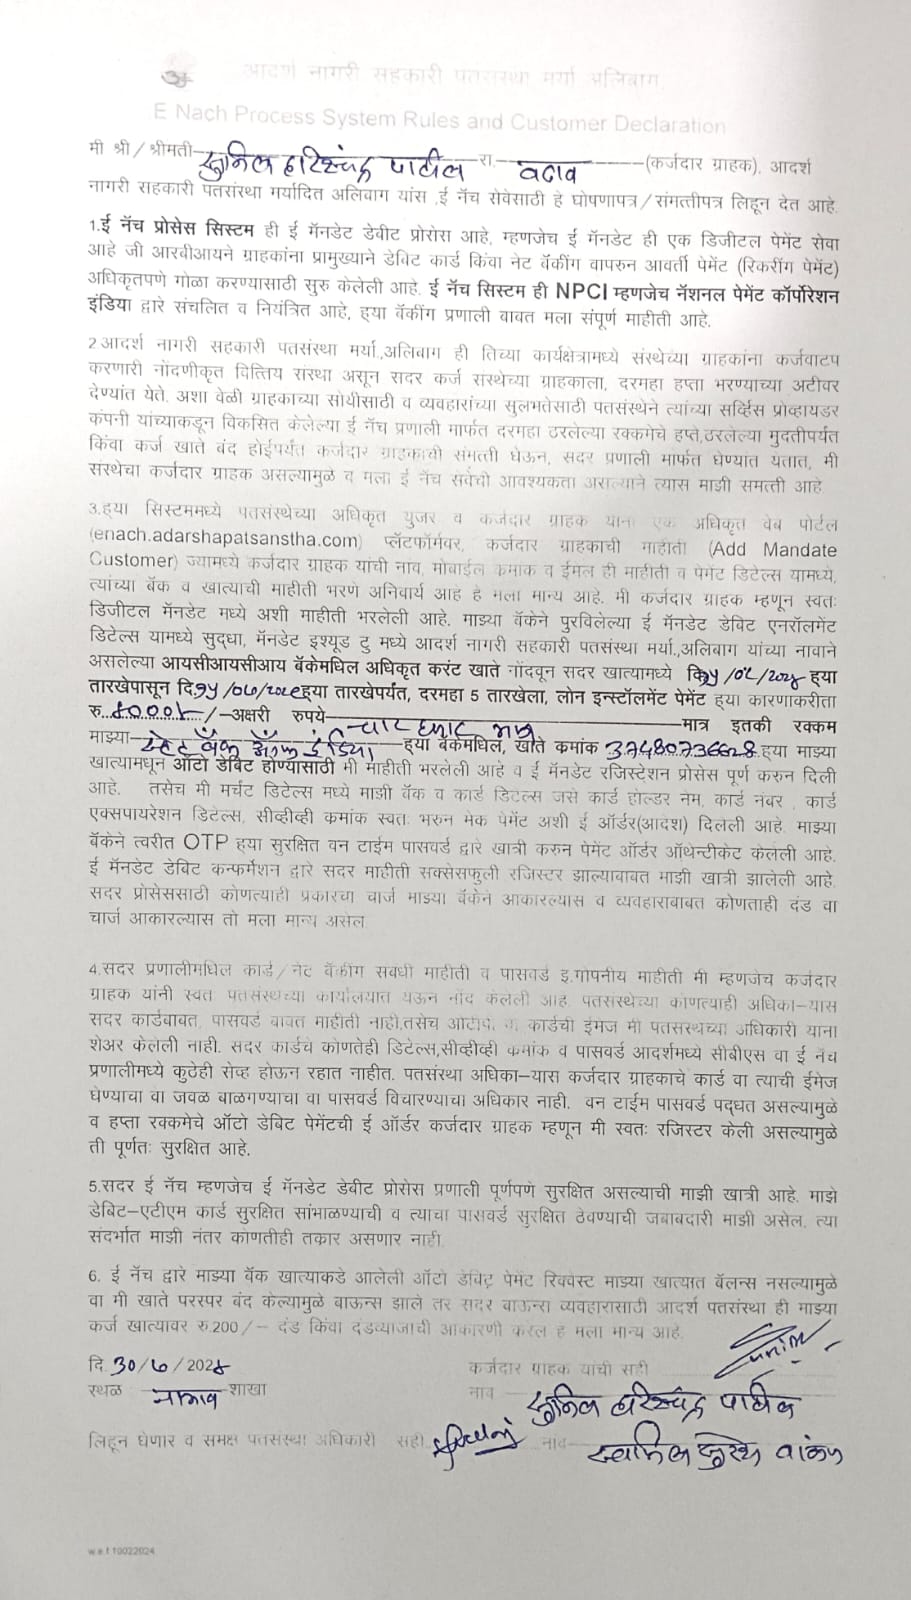 आदर्श नागरी सहकारी पतसंस्था मर्या अलिबाग
E Nach Process System Rules and Customer Declaration
मी श्री / श्रीमती सुनिल हरिश्चंद्र पाटील रा. वढाव (कर्जदार ग्राहक), आदर्श
नागरी सहकारी पतसंस्था मर्यादित अलिबाग यांस ,ई नॅच सेवेसाठी हे घोषणापत्र / संमत्तीपत्र लिहून देत आहे.
1.ई नॅच प्रोसेस सिस्टम ही ई मॅनडेट डेबीट प्रोरोस आहे, म्हणजेच ई मॅनडेट ही एक डिजीटल पेमेंट सेवा
आहे जी आरबीआयने ग्राहकांना प्रामुख्याने डेबिट कार्ड किंवा नेट बॅकींग वापरुन आवर्ती पेमेंट (रिकरींग पेमेंट)
अधिकृतपणे गोळा करण्यासाठी सुरु केलेली आहे. ई नॅच सिस्टम ही NPCI म्हणजेच नॅशनल पेमेंट कॉर्पोरेशन
इंडिया द्वारे संचलित व नियंत्रित आहे, ह्या बॅकींग प्रणाली बाबत मला संपूर्ण माहीती आहे.
2 आदर्श नागरी सहकारी पतसंस्था मर्या.,अलिबाग ही तिच्या कार्यक्षेत्रामध्ये संस्थेच्या ग्राहकांना कर्जवाटप
करणारी नोंदणीकृत वित्तिय संस्था असून सदर कर्ज संस्थेच्या ग्राहकाला, दरमहा हप्ता भरण्याच्या अटीवर
देण्यांत येते. अशा वेळी ग्राहकाच्या सोयीसाठी व व्यवहारांच्या सुलभतेसाठी पतसंस्थेने त्यांच्या सर्व्हिस प्रोव्हायडर
कंपनी यांच्याकडून विकसित केलेल्या ई नॅच प्रणाली मार्फत दरमहा ठरलेल्या रक्कमेचे हप्ते,ठरलेल्या मुदतीपर्यंत
किंवा कर्ज खाते बंद होईपर्यंत कर्जदार ग्राहकाची संमत्ती घेऊन, सदर प्रणाली मार्फत घेण्यांत येतात, मी
संस्थेचा कर्जदार ग्राहक असल्यामुळे व मला ई नॅच सेवेची आवश्यकता असल्याने त्यास माझी समत्ती आहे.
3.ह्या सिस्टममध्ये पतसंस्थेच्या अधिकृत युजर व कर्जदार ग्राहक यांना एक अधिकृत वेब पोर्टल
(enach.adarshapatsanstha.com) प्लॅटफॉर्मवर, कर्जदार ग्राहकाची माहीती (Add Mandate
Customer) ज्यामध्ये कर्जदार ग्राहक यांची नाव, मोबाईल कमांक व ईमेल ही माहीती व पेमेंट डिटेल्स यामध्ये,
त्यांच्या बॅक व खात्याची माहीती भरणे अनिवार्य आहे हे मला मान्य आहे. मी कर्जदार ग्राहक म्हणून स्वतः
डिजीटल मॅनडेट मध्ये अशी माहीती भरलेली आहे. माझ्या बॅकेने पुरविलेल्या ई मॅनडेट डेबिट एनरॉलमेंट
डिटेल्स यामध्ये सुद्धा, मॅनडेट इश्यूड टु मध्ये आदर्श नागरी सहकारी पतसंस्था मर्या.,अलिबाग यांच्या नावाने
असलेल्या आयसीआयसीआय बॅकेमधिल अधिकृत करंट खाते नोंदवून सदर खात्यामध्ये दि ह्या
तारखेपासून दि ह्या तारखेपर्यंत, दरमहा 5 तारखेला, लोन इन्स्टॉलमेंट पेमेंट ह्या कारणाकरीता
रु. /-अक्षरी रुपये मात्र इतकी रक्कम
माझ्या स्टेट बँक ऑफ इंडिया ह्या बॅकेमधिल, खाते कमांक 37480736628 ह्या माझ्या
खात्यामधून ऑटो डेबिट होण्यासाठी मी माहीती भरलेली आहे व ई मॅनडेट रजिस्टेशन प्रोसेस पूर्ण करुन दिली
आहे. तसेच मी मर्चंट डिटेल्स मध्ये माझी बॅक व कार्ड डिटल्स जसे कार्ड होल्डर नेम, कार्ड नंबर , कार्ड
एक्सपायरेशन डिटेल्स, सीव्हीव्ही कमांक स्वतः भरुन मेक पेमेंट अशी ई ऑर्डर(आदेश) दिलेली आहे. माझ्या
बॅकेने त्वरीत OTP ह्या सुरक्षित वन टाईम पासवर्ड द्वारे खात्री करुन पेमेंट ऑर्डर ऑथेन्टीकेट केलेली आहे.
ई मॅनडेट डेबिट कन्फर्मेशन द्वारे सदर माहीती सक्सेसफुली रजिस्टर झाल्याबाबत माझी खात्री झालेली आहे.
सदर प्रोसेससाठी कोणत्याही प्रकारचा चार्ज माझ्या बॅकेने आकारल्यास व व्यवहाराबाबत कोणताही दंड वा
चार्ज आकारल्यास तो मला मान्य असेल
4.सदर प्रणालीमधिल कार्ड / नेट बॅकींग सबंधी माहीती व पासवर्ड इ.गोपनीय माहीती मी म्हणजेच कर्जदार
ग्राहक यांनी स्वतः पतसंस्थेच्या कार्यालयात येऊन नोंद केलेली आहे. पतसंस्थेच्या कोणत्याही अधिका-यास
सदर कार्डबाबत, पासवर्ड बाबत माहीती नाही,तसेच ओटीपी वा कार्डची ईमेज मी पतसंस्थेच्या अधिकारी यांना
शेअर केलेली नाही. सदर कार्डचे कोणतेही डिटेल्स,सीव्हीव्ही कमांक व पासवर्ड आदर्शमध्ये सीबीएस वा ई नॅच
प्रणालीमध्ये कुठेही सेव्ह होऊन रहात नाहीत. पतसंस्था अधिका-यास कर्जदार ग्राहकाचे कार्ड वा त्याची ईमेज
घेण्याचा वा जवळ बाळगण्याचा वा पासवर्ड विचारण्याचा अधिकार नाही. वन टाईम पासवर्ड पद्धत असल्यामुळे
व हप्ता रक्कमेचे ऑटो डेबिट पेमेंटची ई ऑर्डर कर्जदार ग्राहक म्हणून मी स्वतः रजिस्टर केली असल्यामुळे
ती पूर्णतः सुरक्षित आहे.
5.सदर ई नॅच म्हणजेच ई मॅनडेट डेबीट प्रोसेस प्रणाली पूर्णपणे सुरक्षित असल्याची माझी खात्री आहे. माझे
डेबिट-एटीएम कार्ड सुरक्षित सांभाळण्याची व त्याचा पासवर्ड सुरक्षित ठेवण्याची जबाबदारी माझी असेल, त्या
संदर्भात माझी नंतर कोणतीही तकार असणार नाही.
6. ई नॅच द्वारे माझ्या बॅक खात्याकडे आलेली ऑटो डेबिट पेमेंट रिक्वेस्ट माझ्या खात्यात बॅलन्स नसल्यामुळे
वा मी खाते परस्पर बंद केल्यामुळे बाऊन्स झाले तर सदर बाऊन्स व्यवहारासाठी आदर्श पतसंस्था ही माझ्या
कर्ज खात्यावर रु.200/- दंड किंवा दंडव्याजाची आकारणी करेल हे मला मान्य आहे.
दि. 30/6/2024 कर्जदार ग्राहक यांची सही
स्थळ शाखा नाव सुनिल हरिश्चंद्र पाटील
लिहून घेणार व समक्ष पतसंस्था अधिकारी सही नाव
w.e.f 10022024